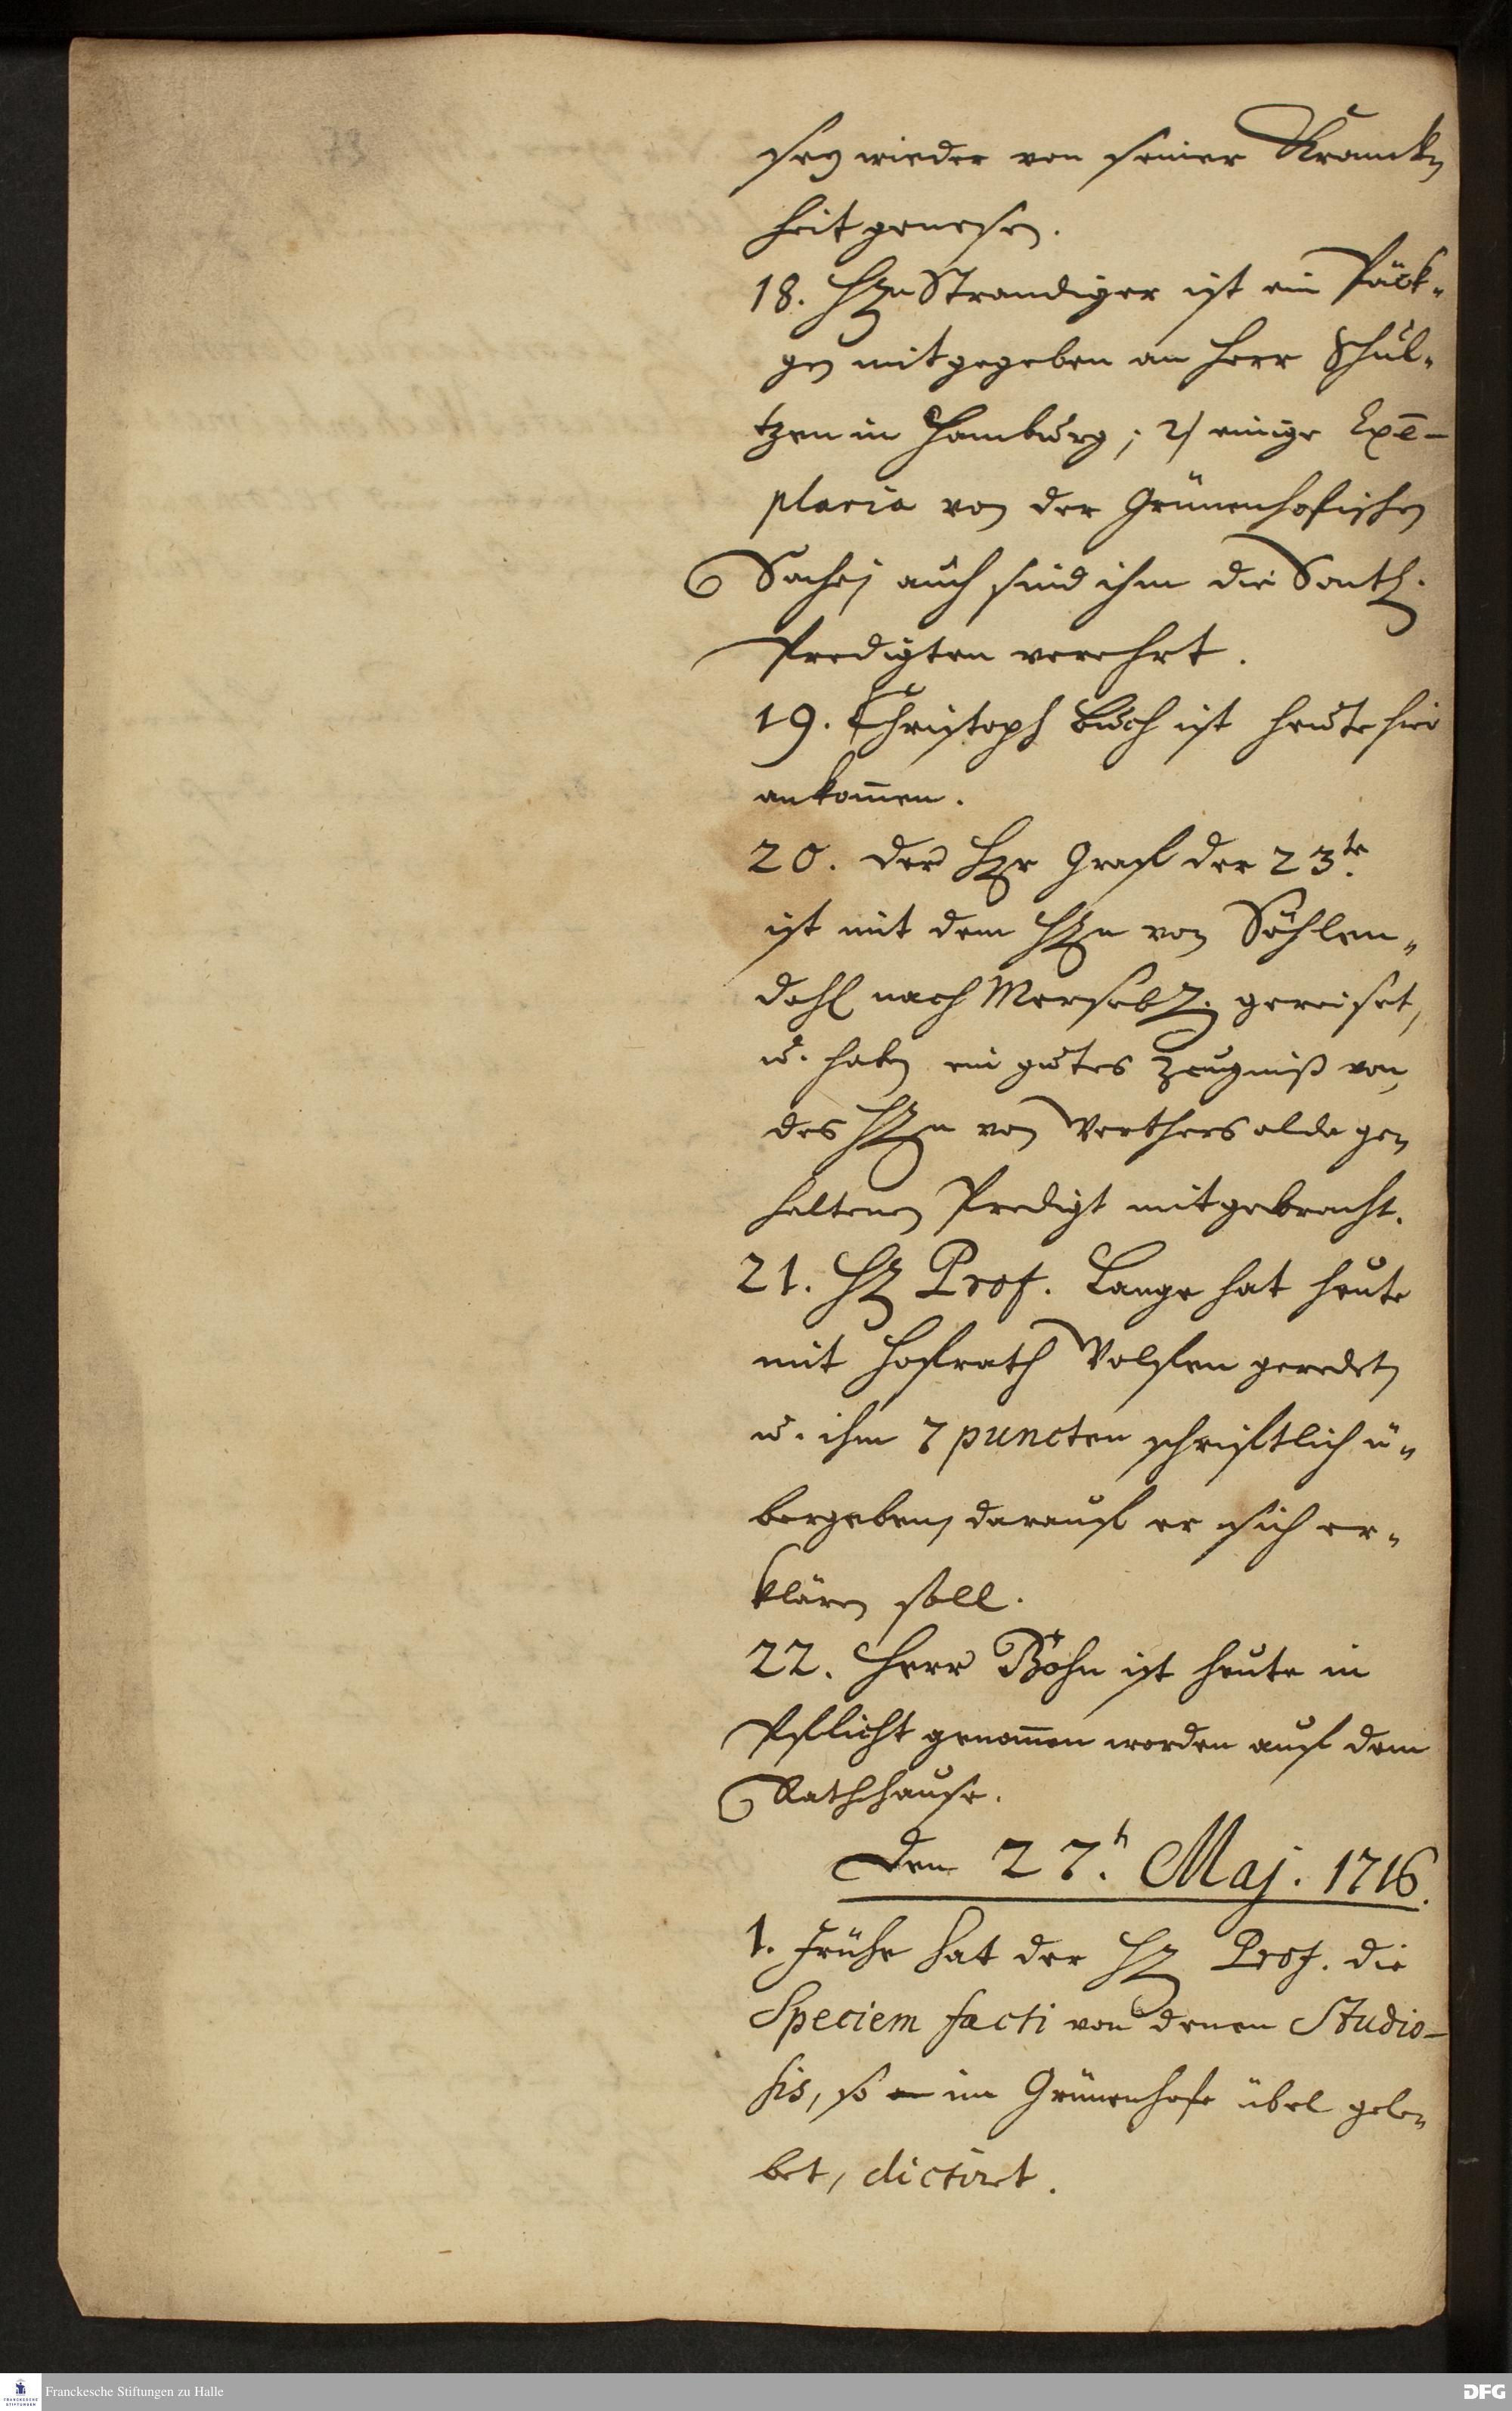 sey wieder von seiner Kranck-
heit genesen.
18. Hrn Strandiger ist ein Päck-
gen mitgegeben an Herr Schul-
tzen in Hamburg; 2) einige Exē-
plaria von der Grünenhofischen
Sache; auch sind ihm die Sonth.
Predigten verehrt.
19. Christoph Buch ist heute hier
ankom̄en.
20. Der Hr Graff der 23te
ist mit dem Hrn von Söhlen-
dahl nach Merseb. gereiset,
u. haben ein gutes Zeugniß von
des Hrn von Werthers alda ge-
haltenen Predigt mitgebracht.
21. H. Prof. Lange hat heute
mit Hoffrath Wolffen geredet,
u. ihm 7 puncten schrifftlich ü-
bergeben, darauff er sich er-
klären soll.
22. Herr Böhn ist heute in
Pflicht genom̄en worden auff dem
Rathhause.
Den 27. Maj. 1716.
1. Frühe hat der H. Prof. die
Speciem facti von denen Studio-
sis, so im Grünenhofe übel gele-
bet, dictiret.
73
Franckesche Stiftungen zu Halle
FRANCKESCHE STIFTUNGEN
DFG